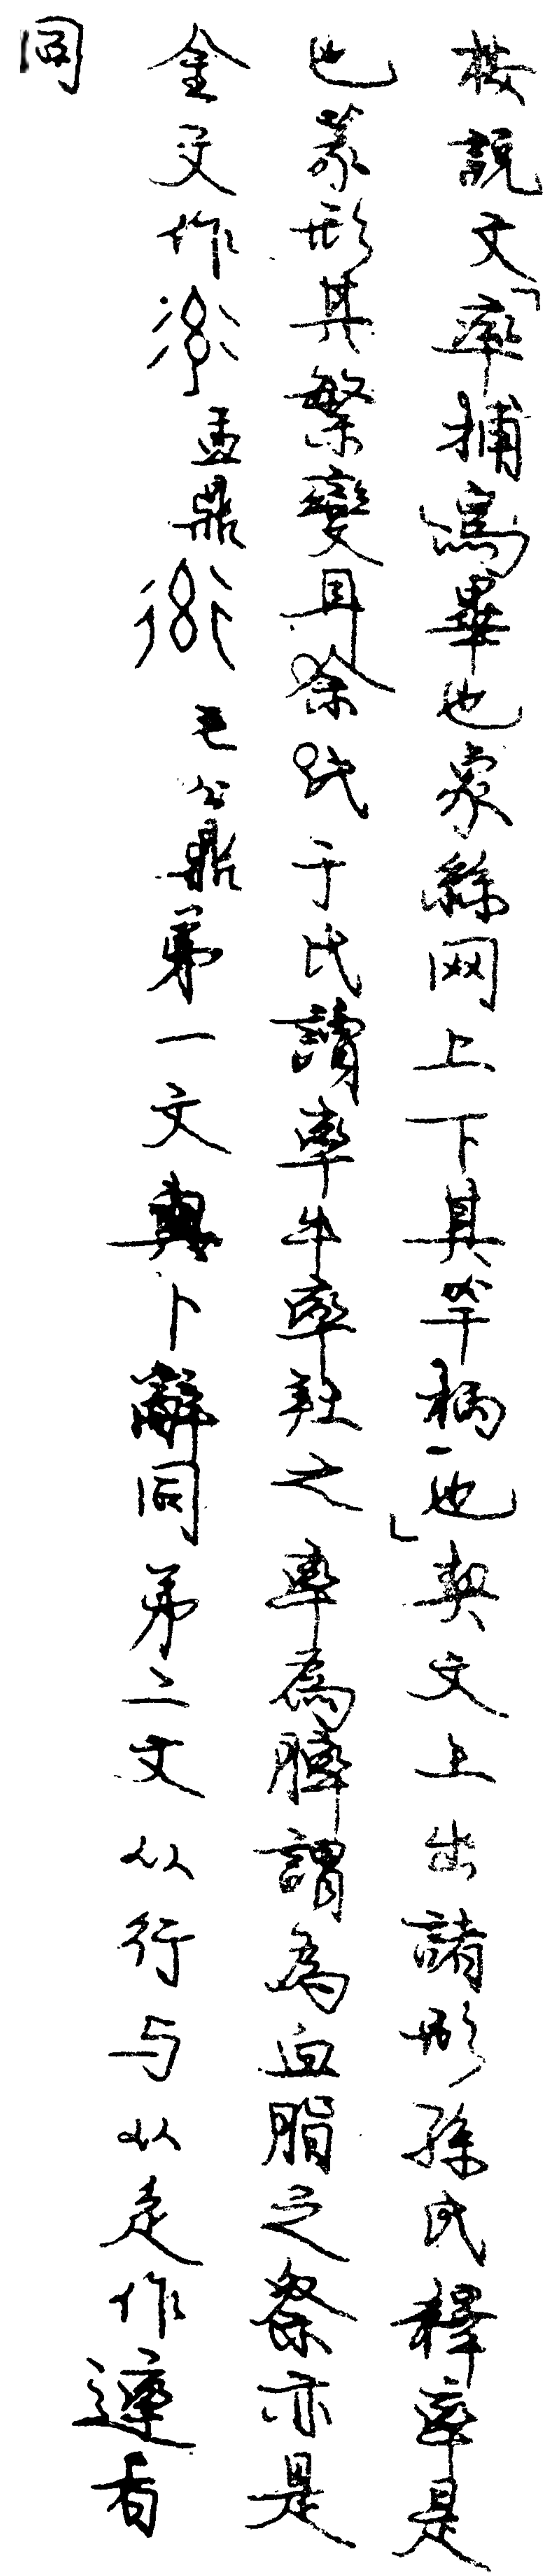 按說文「率捕鳥畢也象絲网上下其竿柄也」契文上出諸形孫氏釋率是
也篆形其繁變耳徐氏于氏讀率牛率羌之率為膟謂為血脂之祭亦是
金文作盂鼎毛公鼎弟一文與卜辭同弟二文从行与从辵作達者
同